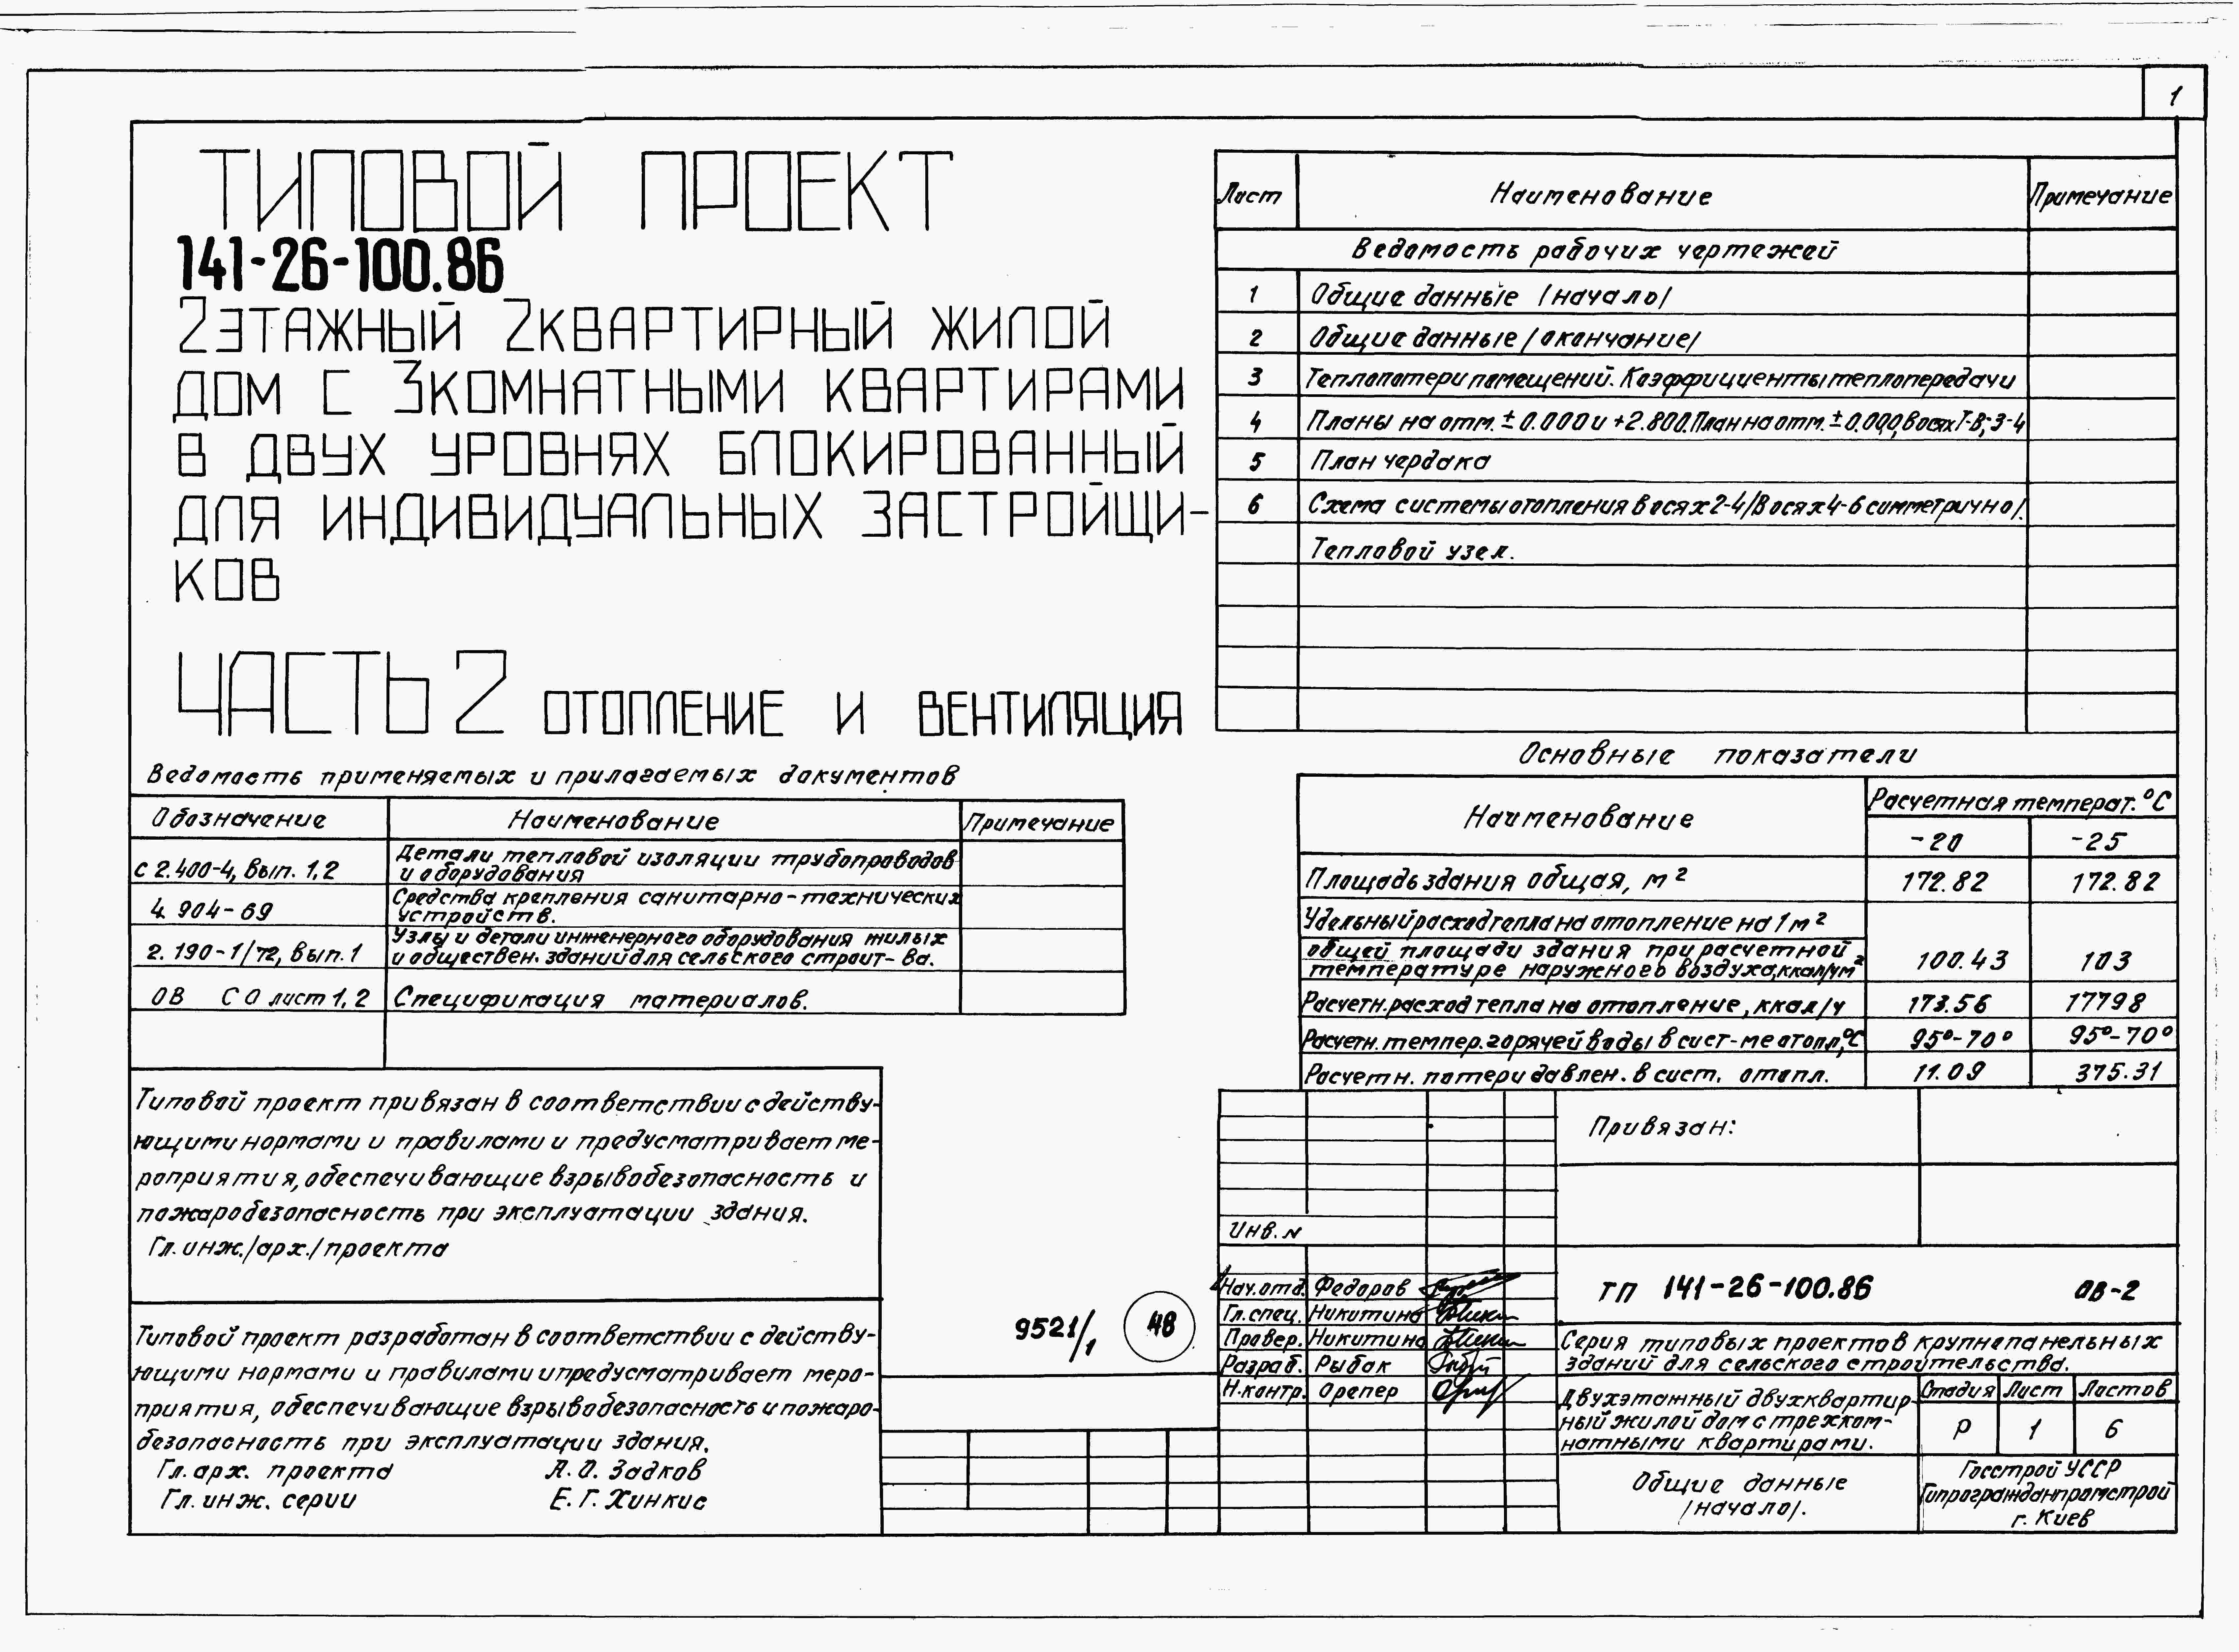 1
ТИПОВОЙ ПРОЕКТ
141-26-100.86
2ЭТАЖНЫЙ 2КВАРТИРНЫЙ ЖИЛОЙ
ДОМ С 3КОМНАТНЫМИ КВАРТИРАМИ
В ДВУХ УРОВНЯХ БЛОКИРОВАННЫЙ
ДЛЯ ИНДИВИДУАЛЬНЫХ ЗАСТРОЙЩИ-
КОВ
ЧАСТЬ 2 ОТОПЛЕНИЕ И ВЕНТИЛЯЦИЯ
Лист Наименование Примечание
Ведомость рабочих чертежей
1 Общие данные /начало/
2 Общие данные /окончание/
3 Теплопотери помещений. Коэффициенты теплопередачи
4 Планы на отм. ±0.000 и +2.800. План на отм. ±0.000, в осях Г-В; 3-4
5 План чердака
6 Схема системы отопления в осях 2-4 /В осях 4-6 симметрично/.
Тепловой узел.
Ведомость применяемых и прилагаемых документов
Обозначение Наименование Примечание
с 2.400-4, вып. 1,2 Детали тепловой изоляции трубопроводов
и оборудования
4. 904-69 Средства крепления санитарно-технических
устройств.
2. 190-1/72, вып. 1 Узлы и детали инженерного оборудования жилых
и обществен. зданий для сельского строит-ва.
ОВ СО лист 1, 2 Спецификация материалов.
Основные показатели
Наименование Расчетная температ. °С
-20 -25
Площадь здания общая, м² 172.82 172.82
Удельный расход тепла на отопление на 1м²
общей площади здания при расчетной
температуре наружного воздуха, ккал/чм² 100.43 103
Расчетн. расход тепла на отопление, ккал/ч 173.56 17798
Расчетн. темпер. горячей воды в сист-ме отопл, °С 95°-70° 95°-70°
Расчетн. потери давлен. в сист. отопл. 11.09 375.31
Типовой проект привязан в соответствии с действу-
ющими нормами и правилами и предусматривает ме-
роприятия, обеспечивающие взрывобезопасность и
пожаробезопасность при эксплуатации здания.
Гл. инж./арх./проекта
Типовой проект разработан в соответствии с действу-
ющими нормами и правилами и предусматривает меро-
приятия, обеспечивающие взрывобезопасность и пожаро-
безопасность при эксплуатации здания.
Гл. арх. проекта А. О. Задков
Гл. инж. серии Е. Г. Хинкис
9521/1 48
Привязан:
Инв. N
Нач. отд. Федоров
Гл. спец. Никитина
Провер. Никитина
Разраб. Рыбак
Н.контр. Орепер
ТП 141-26-100.86 ОВ-2
Серия типовых проектов крупнопанельных
зданий для сельского строительства.
Двухэтажный двухквартир-
ный жилой дом с трехком-
натными квартирами.
Стадия Лист Листов
Р 1 6
Общие данные
/начало/.
Госстрой УССР
Гипрогражданпромстрой
г. Киев